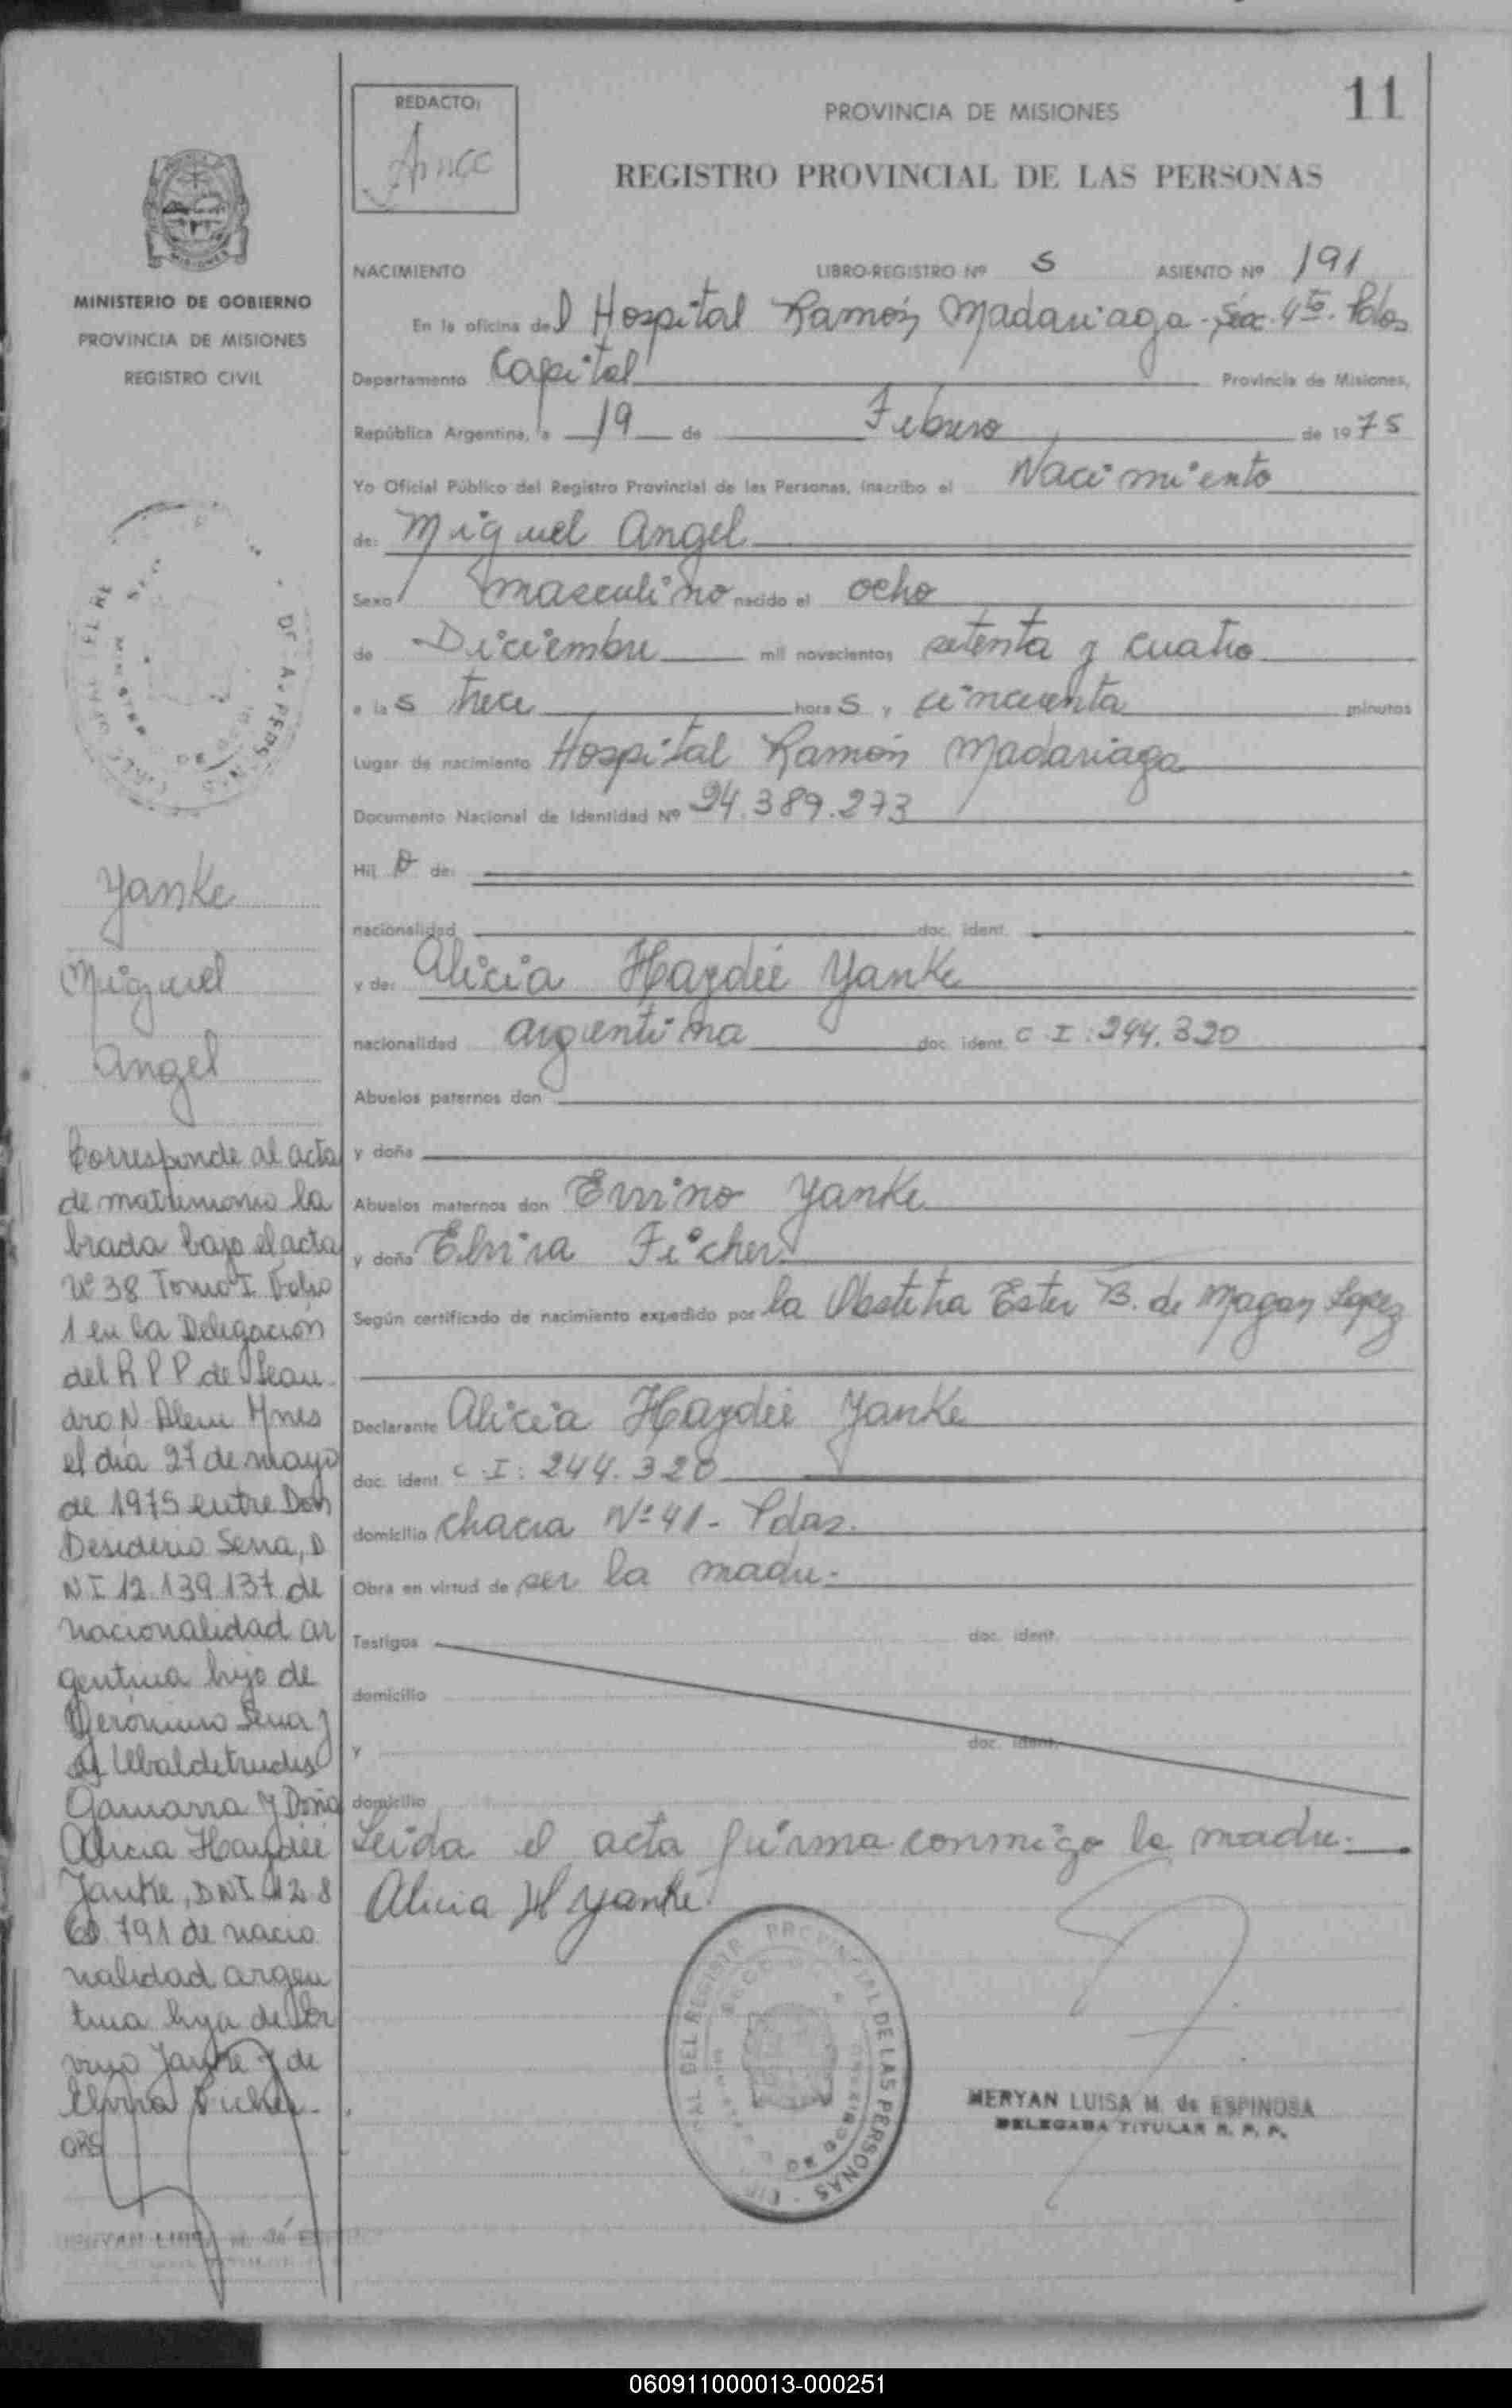 11
REDACTO:
PROVINCIA DE MISIONES
REGISTRO PROVINCIAL DE LAS PERSONAS
MINISTERIO DE GOBIERNO
PROVINCIA DE MISIONES
REGISTRO CIVIL
NACIMIENTO LIBRO-REGISTRO Nº 5 ASIENTO Nº 191
En la oficina del Hospital Ramón Madariaga - Sec. 4ta. Pdas
Departamento Capital Provincia de Misiones,
República Argentina, a 19 de Febrero de 1975
Yo Oficial Público del Registro Provincial de las Personas, inscribo el Nacimiento
de: Miguel Angel
Sexo masculino nacido el ocho
de Diciembre mil novecientos setenta y cuatro
a las trece horas y cincuenta minutos
Lugar de nacimiento Hospital Ramón Madariaga
Documento Nacional de Identidad Nº 24.389.273
Hijo de:
nacionalidad doc. ident.
y de: Alicia Haydeé Yanke
nacionalidad argentina doc. ident. C.I: 244.320
Abuelos paternos don
y doña
Abuelos maternos don Ervino Yanke
y doña Elvira Ficher
Según certificado de nacimiento expedido por la Obstetra Ester B. de Magan Lopez
Declarante Alicia Haydeé Yanke
doc. ident. C.I: 244.320
domicilio Chacra Nº 41 - Pdas.
Obra en virtud de ser la madre.
Testigos doc. ident.
domicilio
y doc. ident.
domicilio
Leida el acta firma conmigo la madre.
Alicia H Yanke
MERYAN LUISA M. de ESPINOSA
DELEGADA TITULAR R. P. P.
Yanke
Miguel
Angel
Corresponde al acta
de matrimonio la
brada bajo el acta
Nº 38 Tomo I Folio
1 en la Delegación
del R P P de Lean
dro N Alem Mnes
el día 27 de mayo
de 1975 entre Don
Desiderio Sena, D
N I 12.139.137 de
nacionalidad ar
gentina hijo de
Gerónimo Sena y
de Ubaldetrudis
Gamarra y Doña
Alicia Haydeé
Yanke, DNI 12 8
60.791 de nacio
nalidad argen
tina hija de Er
vino Yanke y de
Elvira Ficher.
060911000013-000251